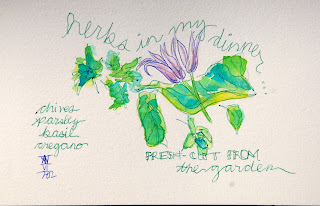 herbs in my dinner...
chives
parsley
basil
oregano
FRESH-CUT FROM
the garden